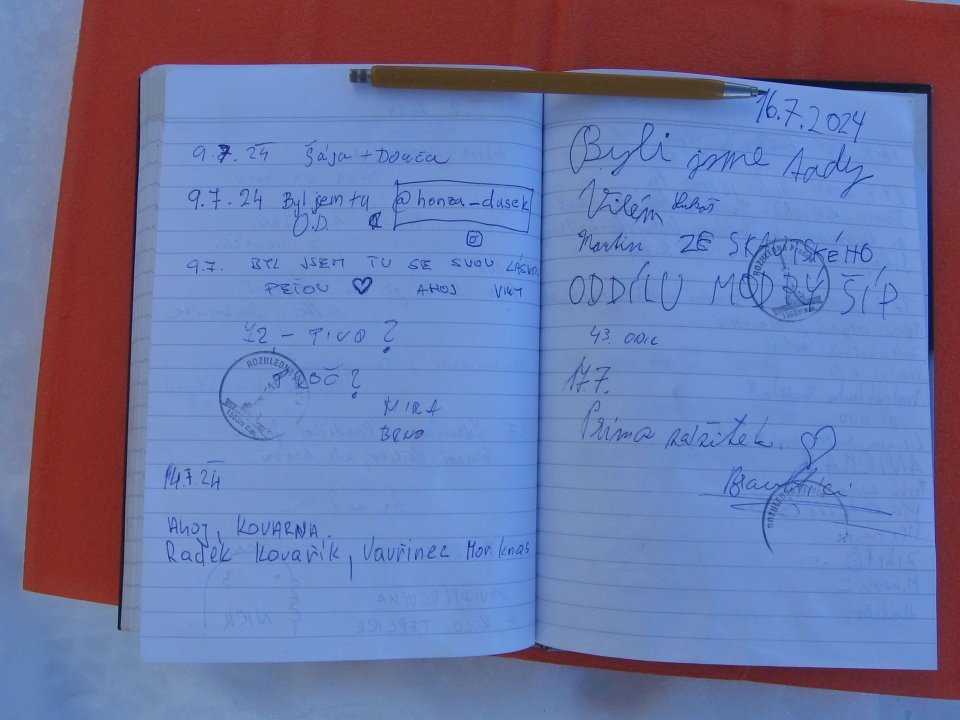 9.7.24 Šája + Douča
9.7.24 Byl jem tu @honza_dusek
O.D.
9.7. BYL JSEM TU SE SVOU LÁSKOU
PEŤOU ♡ AHOJ VIKY
12,- PIVO?
PROČ?
MIRA
BRNO
ROZHLEDNA
14.7.24
AHOJ, KOVARNA.
Radek Kovařík, Vavřinec
16.7.2024
Byli jsme tady
Vilém Lukáš
Martin ZE SKAUTSKÉHO
ODDÍLU MODRÝ ŠÍP
43. oddíl
17.7.
Prima zážitek. ♡